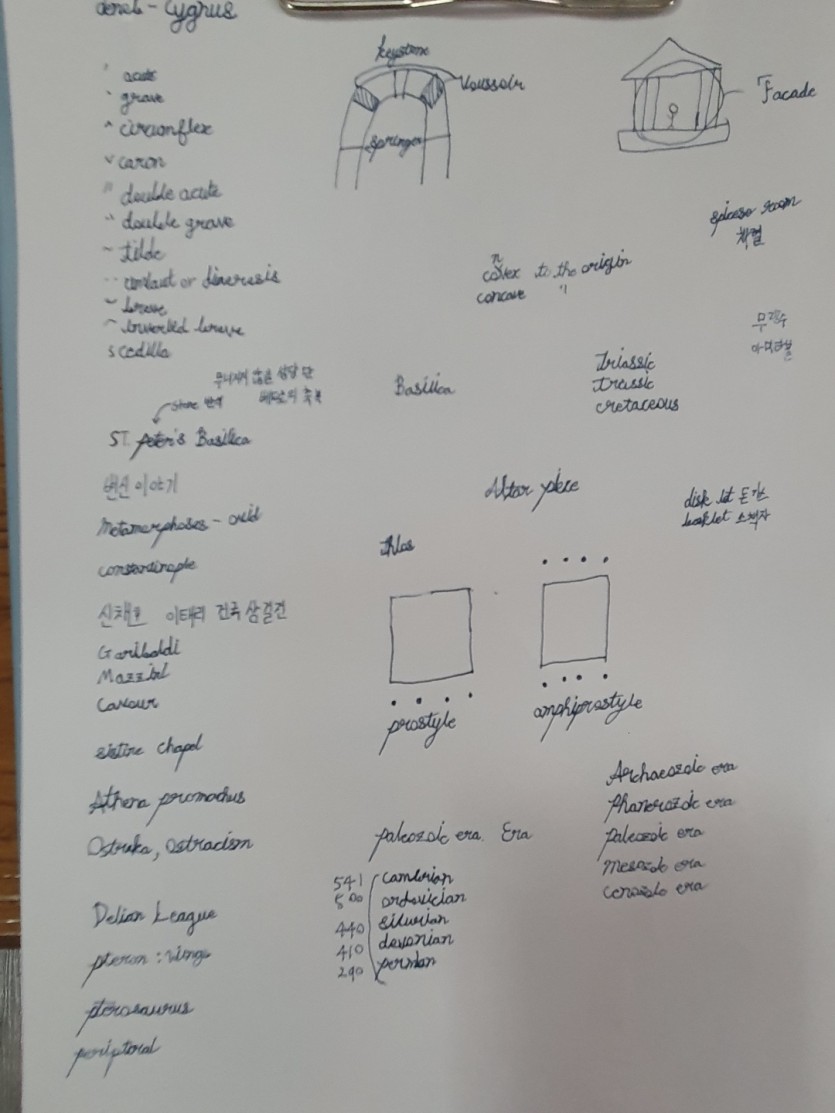 deneb - Cygnus
´ acute
` grave
^ circumflex
ˇ caron
˝ double acute
̏ double grave
~ tilde
¨ umlaut or diaeresis
˘ breve
̑ inverted breve
s cedilla
keystone
Voussoir
springer
Facade
room
convex to the origin
concave "
무리수
Triassic
cretaceous
무너지지 않은
stone 반석
Basilica
ST. peter's Basilica
변신 이야기
Metamorphoses - ovid
constantinople
Altar piece
booklet 소책자
신채호 이태리 건국 삼걸전
Garibaldi
Cavour
prostyle
amphiprostyle
sistine chapel
Athena promachus
Ostraka, Ostracism
Archaeozoic era
Phanerozoic era
Paleozoic era
Mesozoic era
Cenozoic era
paleozoic era. Era
541 cambrian
500 ordovician
440 silurian
410 devonian
290 permian
Delian League
pteron : wings
pterosaurus
peripteral